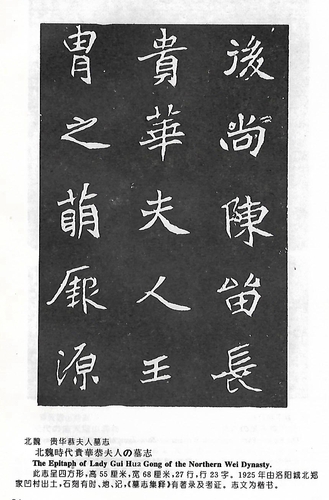 後尚陳畄長
貴華夫人王
胄之萌厥源
北魏 贵华恭夫人墓志
北魏時代貴華恭夫人の墓志
The Epitaph of Lady Gui Hua Gong of the Northern Wei Dynasty.
此志呈四方形，高 55 厘米，宽 68 厘米，27 行，行 23 字。1925 年由洛阳城北郑
家凹村出土，石刻有时、炮、记，《墓志集释》有著录及考证。志文为楷书。